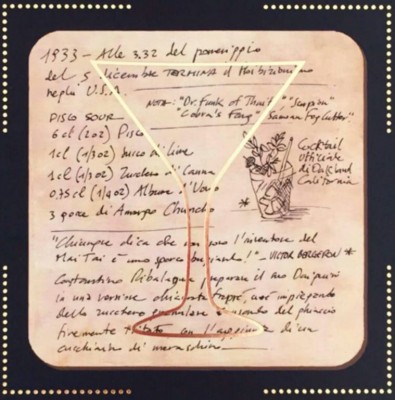 1933 - Alle 3.32 del pomeriggio
del 5 dicembre TERMINA il Proibizionismo
negli U.S.A.
NOTA: "Dr. Funk of Thaiti", "Scorpion"
"Cobra's Fang" Samoan Fog Cutter"
PISCO SOUR
6 cl (2oz) Pisco
1cl (1/3oz) succo di Lime
1cl (1/3oz) Zucchero di Canna
0.75cl (1/4oz) Albume d'Uovo
3 gocce di Amargo Chuncho
Cocktail
Ufficiale
di Oakland
California
"Chiunque dica che non sono l'inventore del
Mai Tai è uno sporco bugiardo!" - VICTOR BERGERON *
Costantino Ribalagua, prepara il suo Daiquiri
in una versione chiamata Frappé, cioè impiegando
dello zucchero granulare e
finemente tritato con l'aggiunta di un
cucchiaino di maraschino